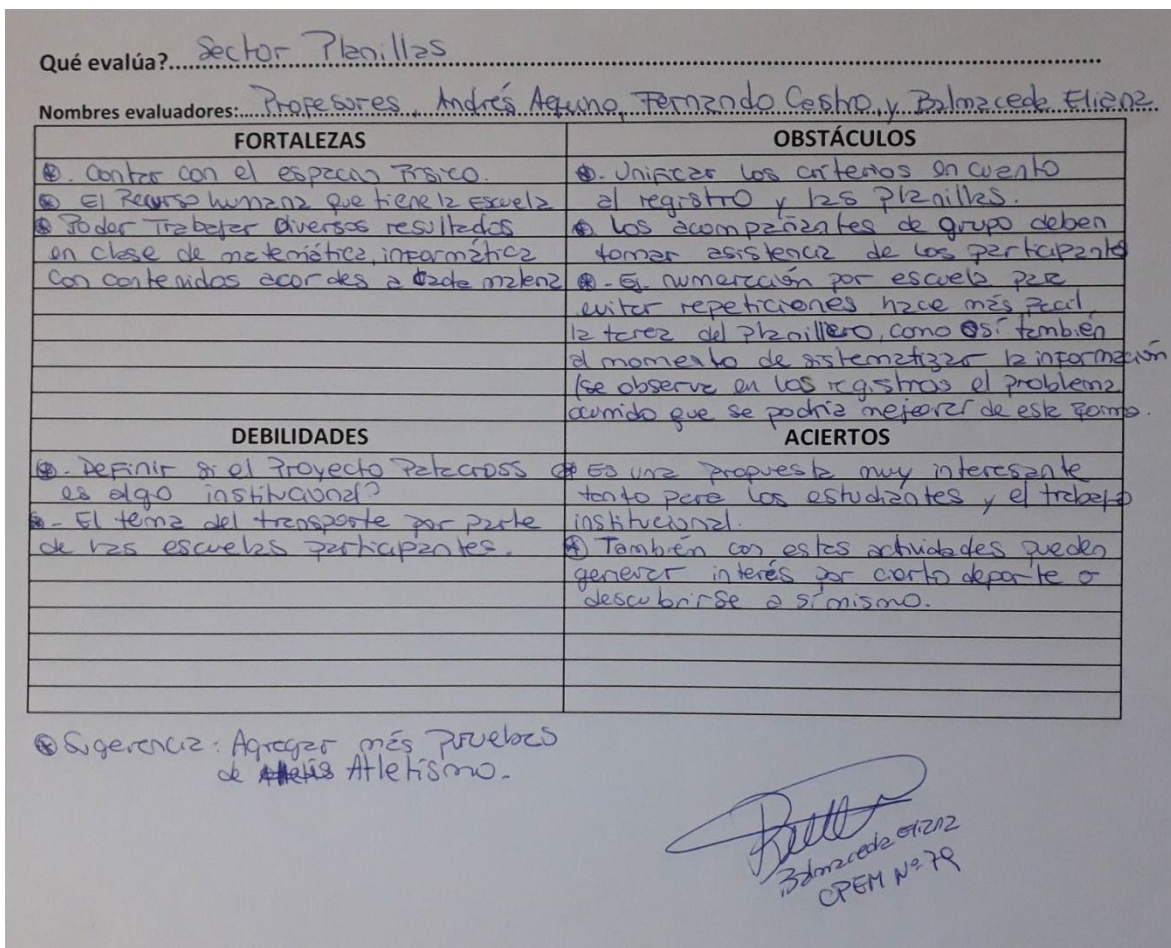 Qué evalúa?.... Sector Planillas
Nombres evaluadores:.... Profesores, Andrés Aquino, Fernando Castro, y Balmaceda Eliana.
FORTALEZAS
⊛. Contar con el espacio Físico.
⊛ El Recurso humana que tiene la Escuela
⊛ Poder Trabajar Diversos resultados
en clase de matemática, informática
Con contenidos acordes a cada materia
OBSTÁCULOS
⊛. Unificar los criterios en cuanto
al registro y las Planillas.
⊛ Los acompañantes de grupo deben
tomar asistencia de los participante
⊛ - Ej. numeración por escuela para
evitar repeticiones hace más facil
la tarea del Planillero, como así también
al momento de sistematizar la información
(se observa en los registros el problema
ocurrido que se podría mejorar de esta forma.
DEBILIDADES
⊛ - Definir si el Proyecto Patacross
es algo institucional?
⊛ - El tema del transporte por parte
de las escuelas participantes.
ACIERTOS
⊛ Es una propuesta muy interesante
tanto para los estudiantes y el trabajo
institucional.
⊛ También con estas actividades pueden
generar interés por cierto deporte o
descubrirse a sí mismo.
⊛ Sugerencia: Agregar más Pruebas
de Atletismo.
Balmaceda Eliana
CPEM Nº 79